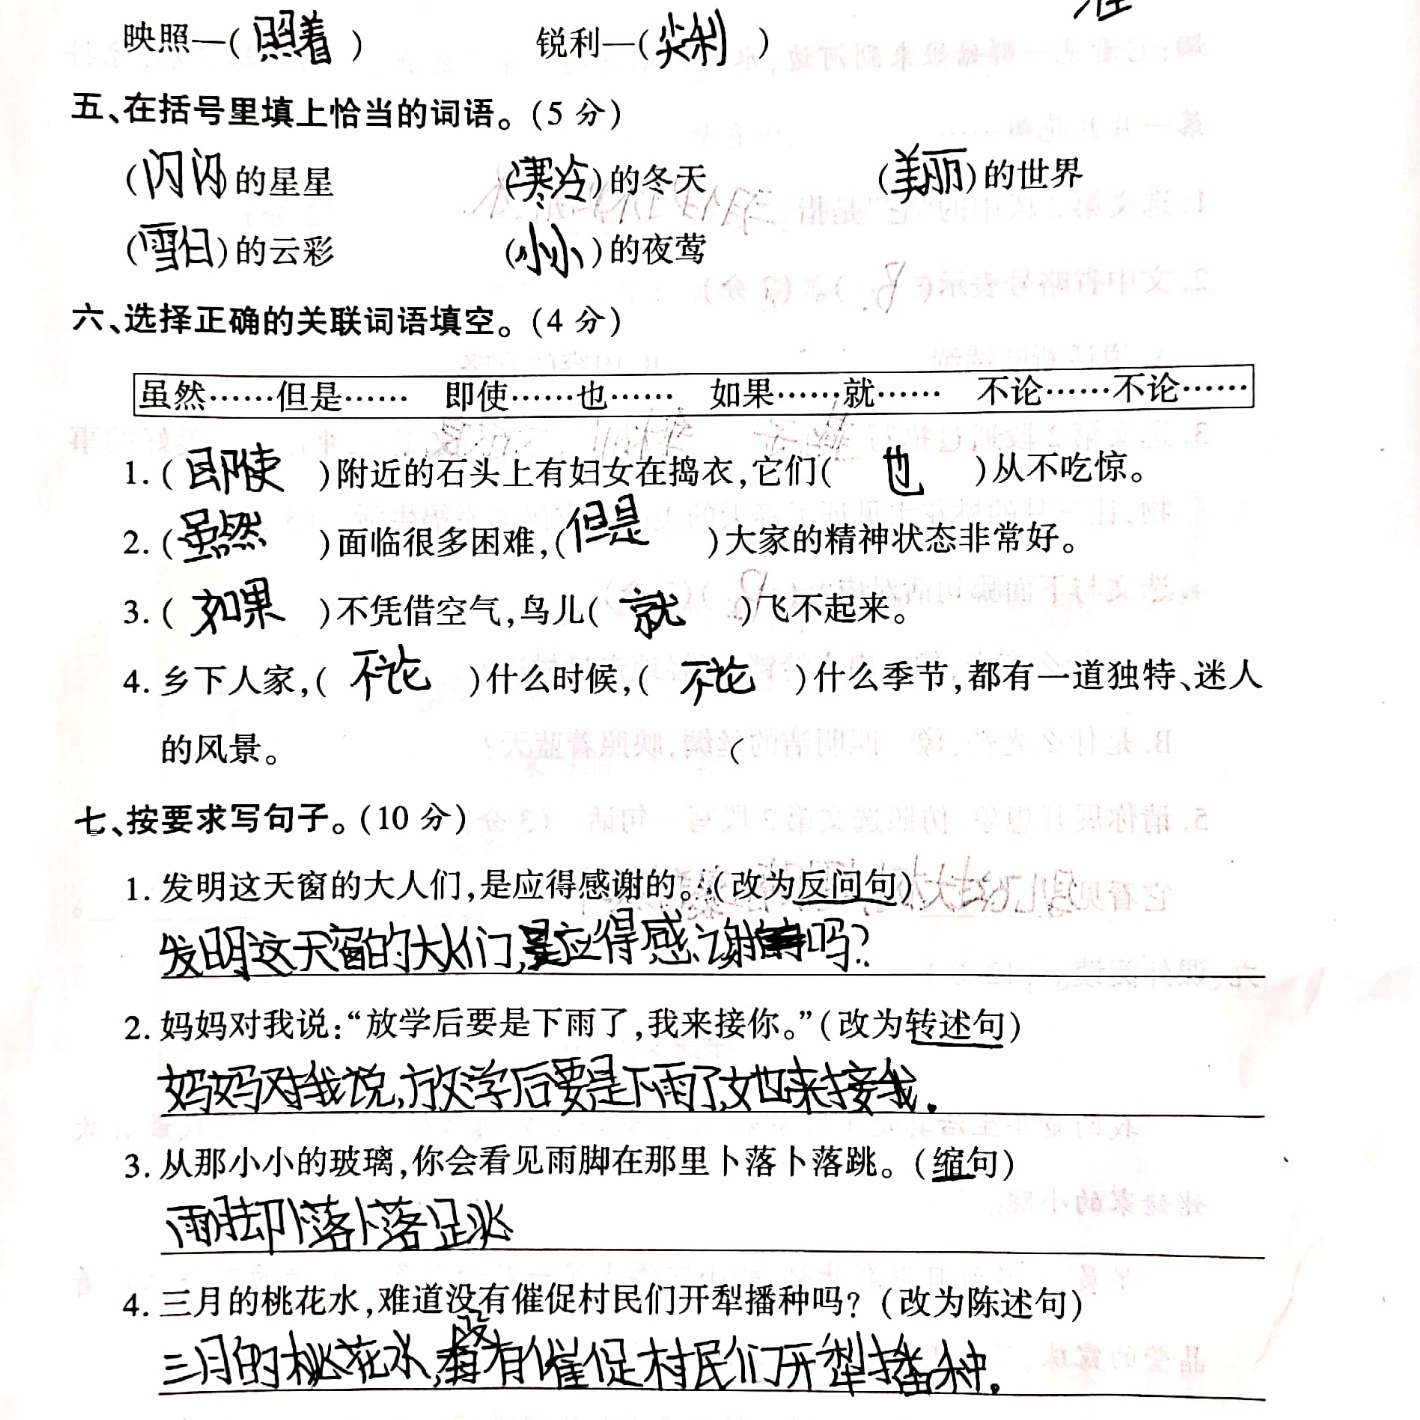 映照—(照着)　锐利—(尖利)
五、在括号里填上恰当的词语。(5 分)
(闪闪)的星星　(寒冷)的冬天　(美丽)的世界
(雪白)的云彩　(小小)的夜莺
六、选择正确的关联词语填空。(4 分)
虽然……但是……　即使……也……　如果……就……　不论……不论……
1. (即使)附近的石头上有妇女在捣衣,它们(也)从不吃惊。
2. (虽然)面临很多困难,(但是)大家的精神状态非常好。
3. (如果)不凭借空气,鸟儿(就)飞不起来。
4. 乡下人家,(不论)什么时候,(不论)什么季节,都有一道独特、迷人
的风景。
七、按要求写句子。(10 分)
1. 发明这天窗的大人们,是应得感谢的。(改为反问句)
发明这天窗的大人们,是应得感谢吗?
2. 妈妈对我说:“放学后要是下雨了,我来接你。”(改为转述句)
妈妈对我说,放学后要是下雨了,她来接我.
3. 从那小小的玻璃,你会看见雨脚在那里卜落卜落跳。(缩句)
雨脚卜落卜落跳
4. 三月的桃花水,难道没有催促村民们开犁播种吗? (改为陈述句)
三月的桃花水,没有催促村民们开犁播种.